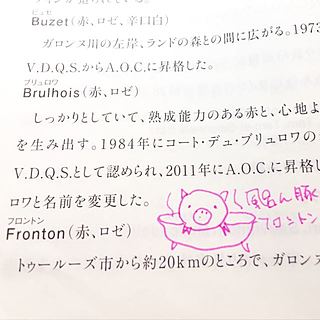 ビュゼ
Buzet(赤、ロゼ、辛口白)
ガロンヌ川の左岸、ランドの森との間に広がる。1973
V.D.Q.S.からA.O.C.に昇格した。
ブリュロワ
Brulhois(赤、ロゼ)
しっかりとしていて、熟成能力のある赤と、心地よ
を生み出す。1984年にコート・デュ・ブリュロワの
V.D.Q.S.として認められ、2011年にA.O.C.に昇格し
ロワと名前を変更した。
風呂ん豚
フロントン
フロントン
Fronton(赤、ロゼ)
トゥールーズ市から約20kmのところで、ガロンヌ